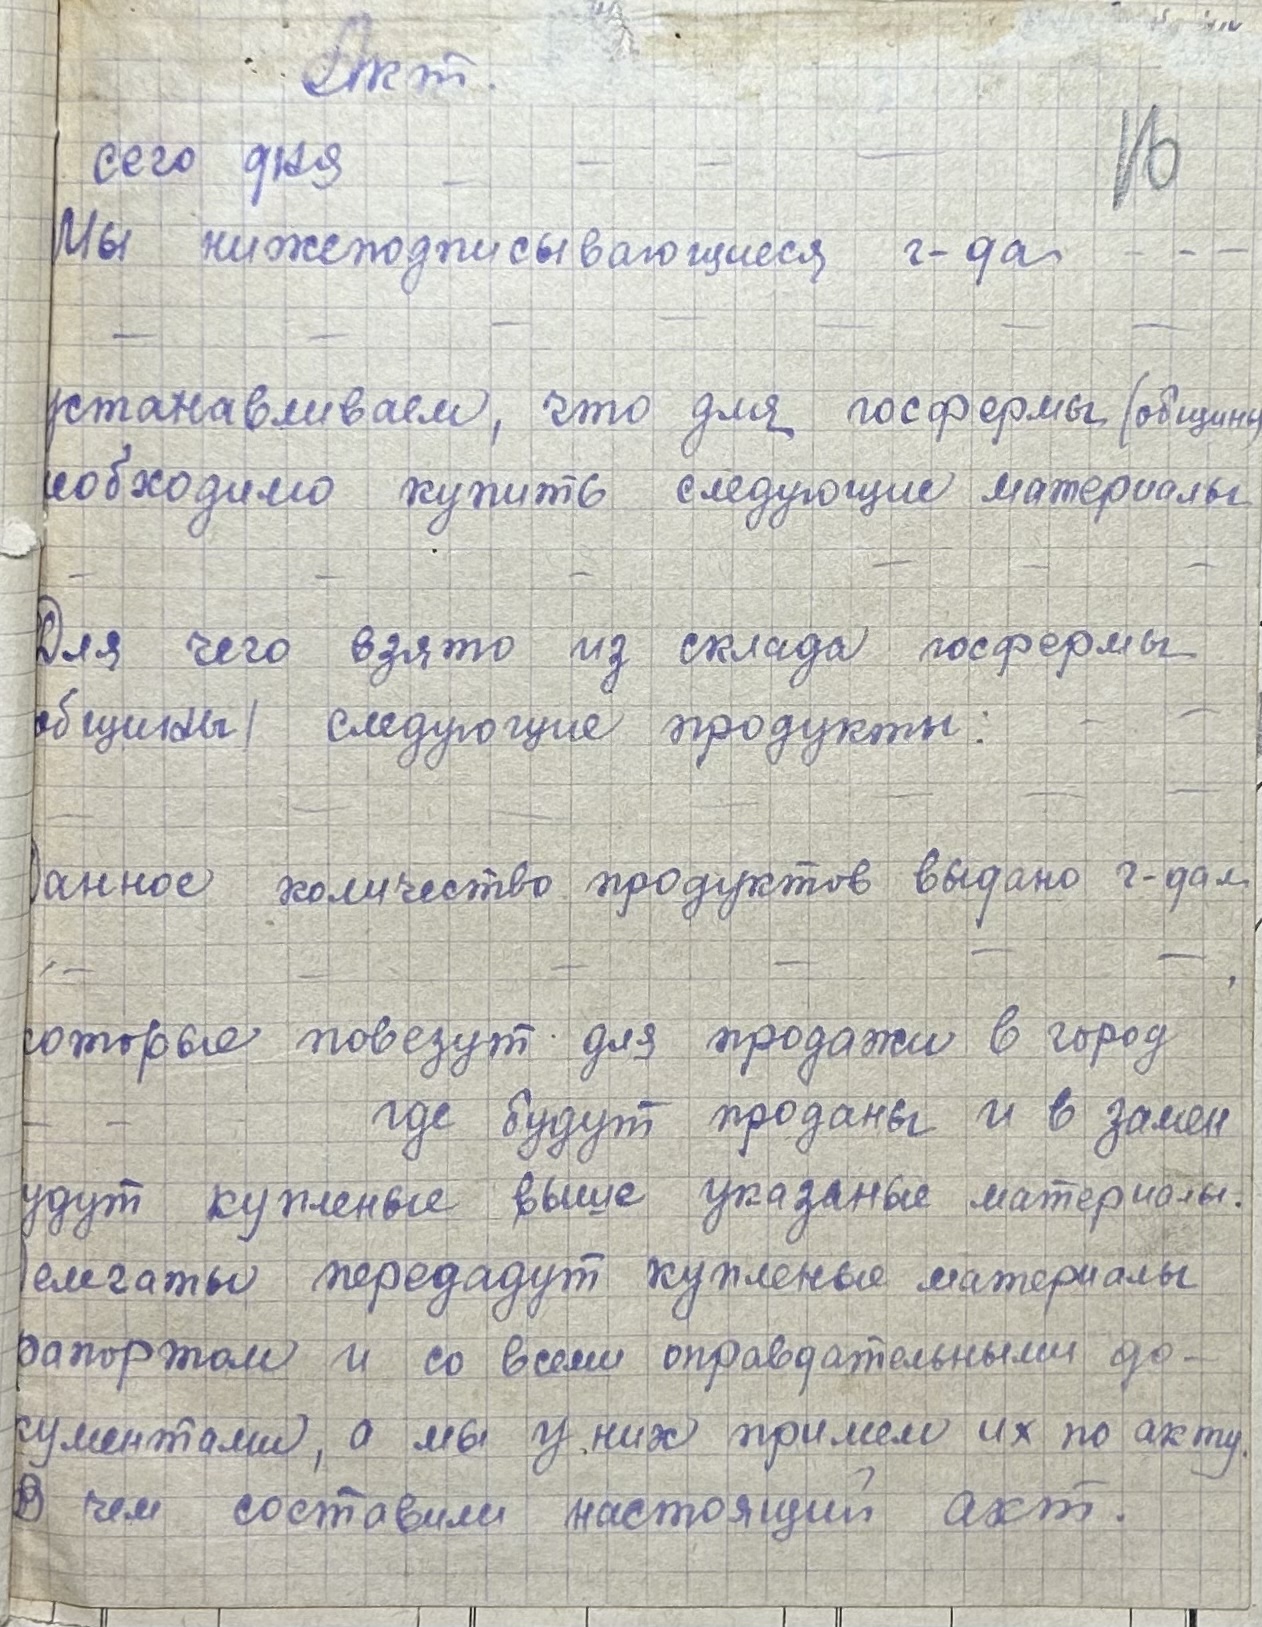 Акт.
16
сего дня — — — —
Мы нижеподписывающиеся г-да - - -
— — — — — — —
устанавливаем, что для госфермы (общины
необходимо купить следующие материалы
— — — — — —
Для чего взято из склада госфермы
общины/ следующие продукты: — —
— — — — — —
Данное количество продуктов выдано г-дам
— — — — — — ,
которые повезут для продажи в город
— — — где будут проданы и в замен
будут купленые выше указаные материалы.
Делегаты передадут купленые материалы
рапортом и со всеми оправдательными до-
кументами, а мы у них примем их по акту.
В чем составили настоящий акт.